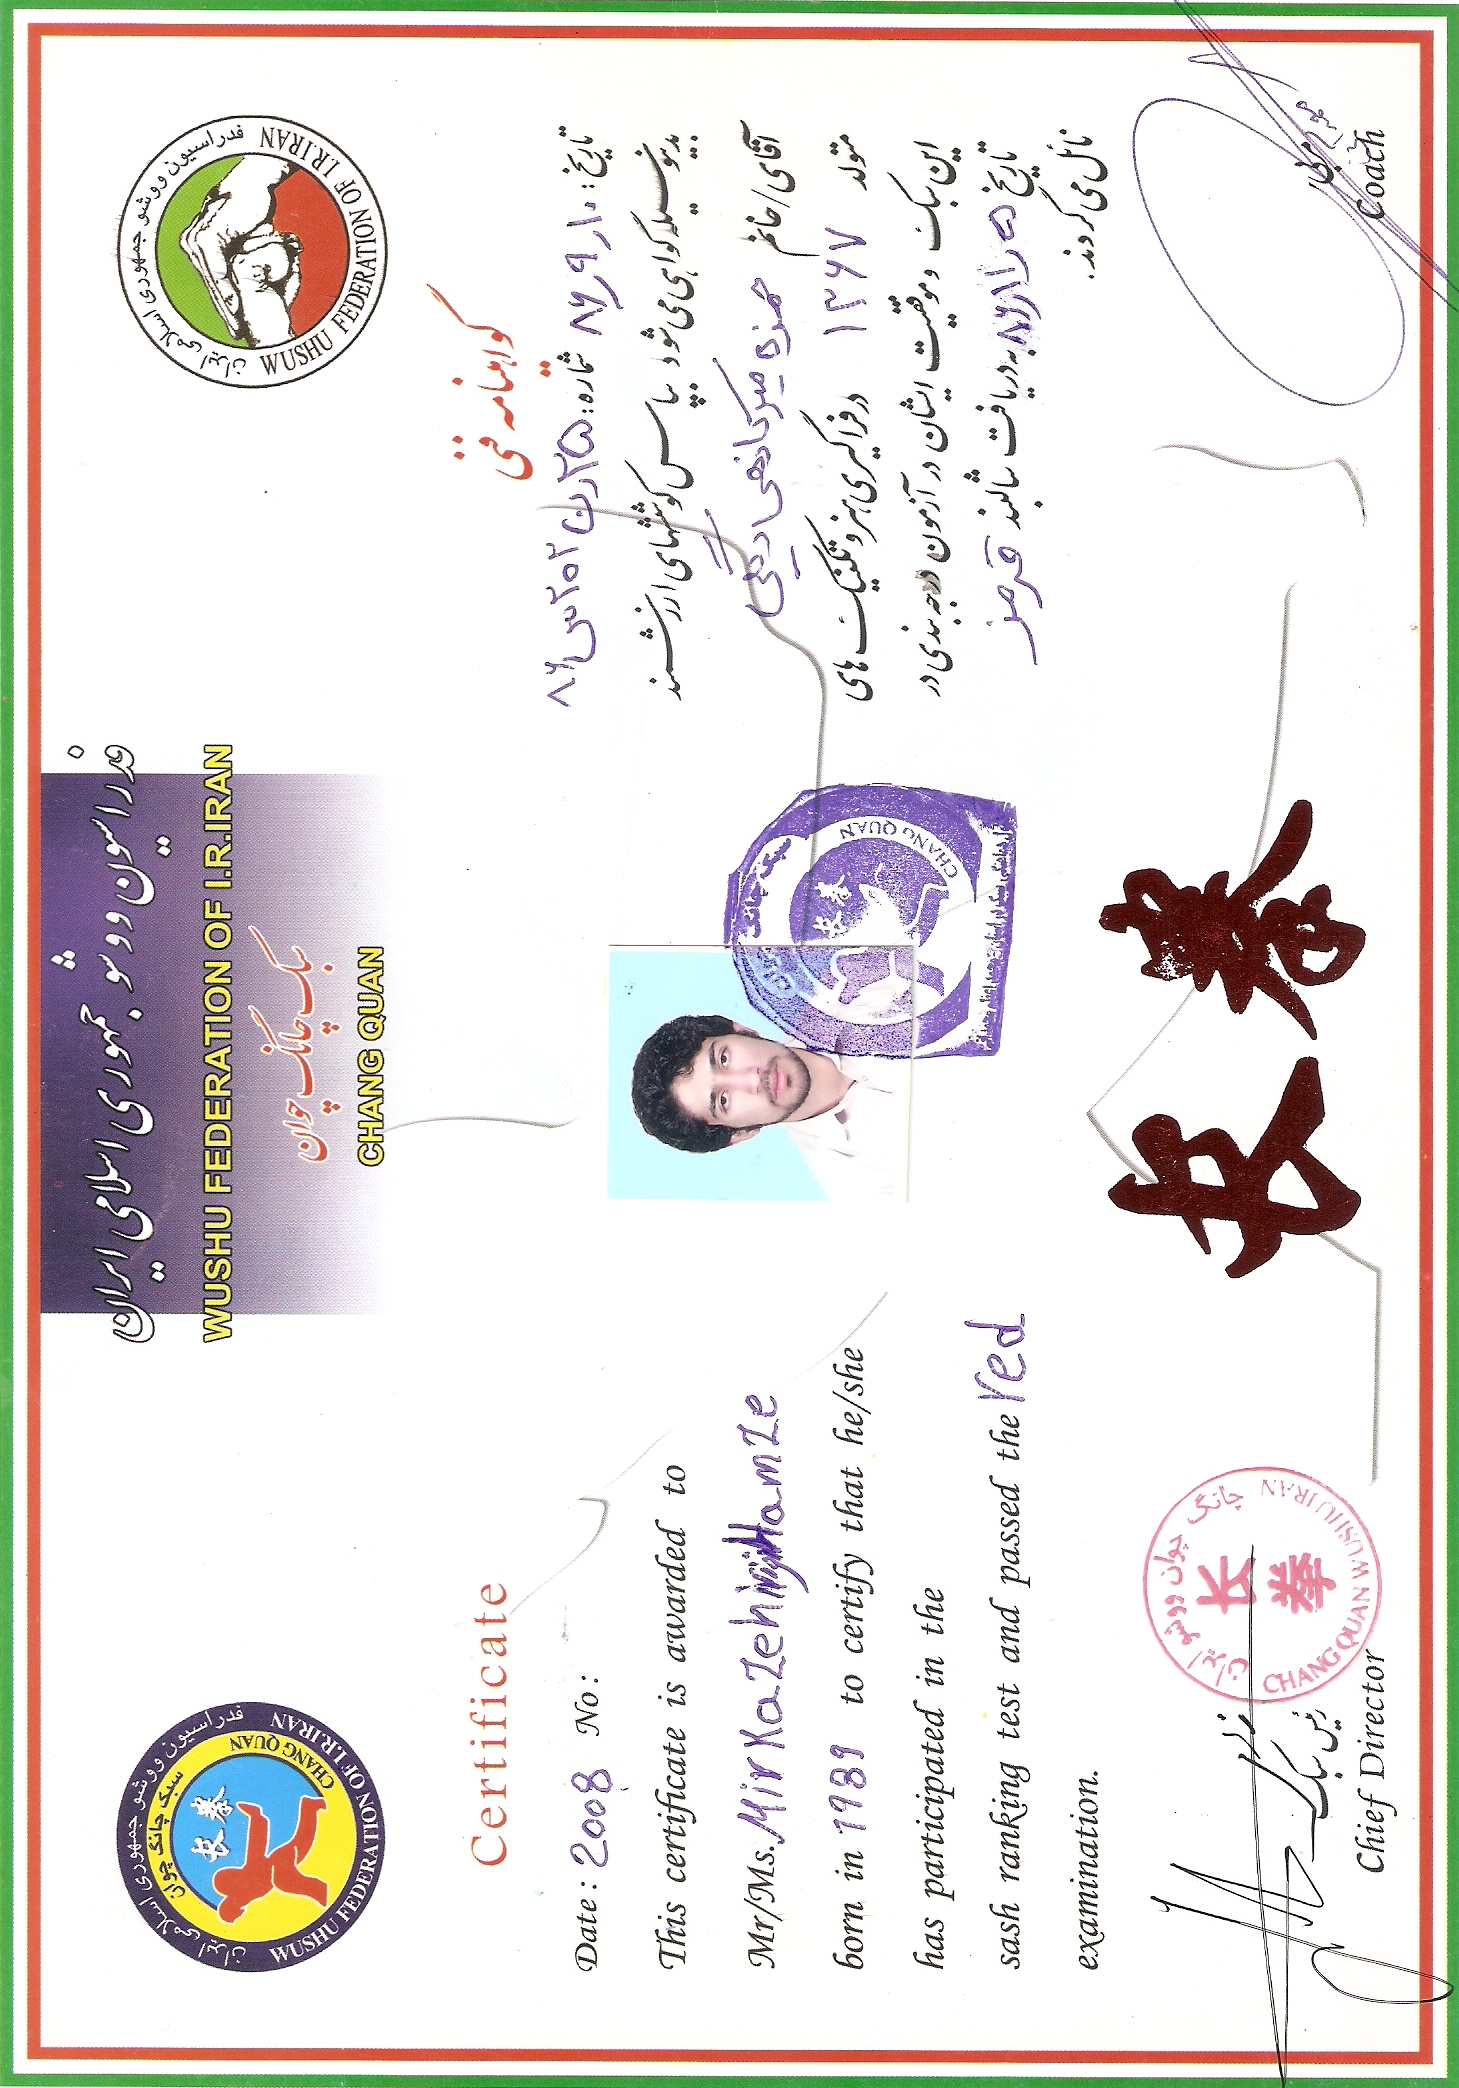 فدراسیون ووشو جمهوری اسلامی ایران
WUSHU FEDERATION OF I.R.IRAN
سبک چانگ چوان
CHANG QUAN
فدراسیون ووشو جمهوری اسلامی ایران
سبک چانگ چوان
长拳
CHANG QUAN
WUSHU FEDERATION OF I.R.IRAN
Certificate
Date: 2008 No:
This certificate is awarded to
Mr/Ms. Mirkazehi Hamze
born in 1989 to certify that he/she
has participated in the
sash ranking test and passed the red
examination.
چانگ چوان ووشو ایران
长拳
CHANG QUAN WUSHU.IRAN
رئیس سبک
Chief Director
سبک چانگ
CHANG QUAN
长拳
长拳
فدراسیون ووشو جمهوری اسلامی ایران
WUSHU FEDERATION OF I.R.IRAN
گواهینامه فنی
تاریخ: ۸۶٫۹٫۱۰ شماره:
بدینوسیله گواهی می شود بپاس کوششهای ارزشمند
آقای/خانم حمزه میرکازهی
متولد ۱۳۶۷ در فراگیری هنر و تکنیک های
این سبک و موفقیت ایشان در آزمون درجه بندی در
تاریخ به دریافت شالبند قرمز
نائل می گردند.
مربی
Coach